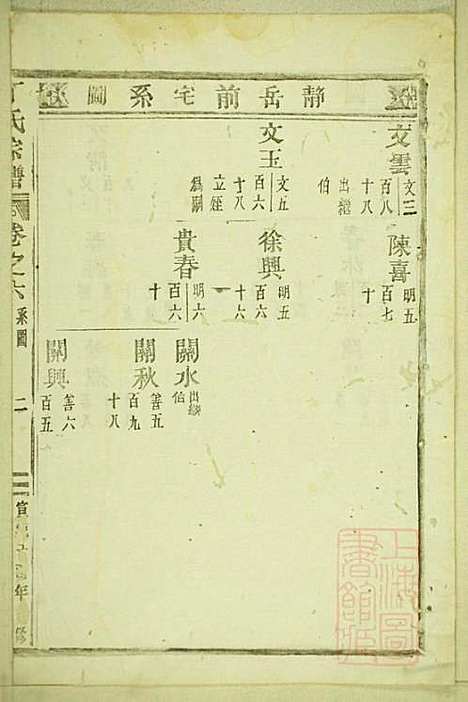 靜岳前宅系圖
文雲
文三
百八
十八
出繼
伯
文玉
文五
百六
十八
立姪
爲嗣
陳喜
明五
百七
十
徐興
明五
百六
十六
貴春
明六
百六
十
關水
出繼
伯
關秋
善五
百九
十八
關興
善六
百五
丁氏宗譜
卷之六
系圖
二
年
修
上海圖
書館藏